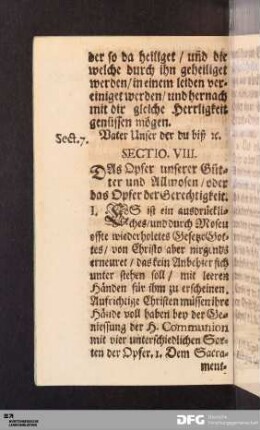 der so da heiliget / uñd die
welche durch ihn geheiliget
werden / in einem leiden ver-
einiget werden / und hernach
mit dir gleiche Herrligkeit
genüssen mögen.
Sect. 7. Vater Unser der du bist ꝛc.
SECTIO. VIII.
DAs Opfer unserer Güt-
ter und Allmosen / oder
das Opfer der Gerechtigkeit.
1. ES ist ein ausdrückli-
ches / und durch Mosen
offte wiederholetes Gesetze Got-
tes / von Christo aber nirgends
erneuret / das kein Anbehter sich
unter stehen soll / mit leeren
Händen für ihm zu erscheinen,
Aufrichtige Christen müssen ihre
Hände voll haben bey der Ge-
niessung der H. Communion
mit vier unterschiedlichen Sor-
ten der Opfer. 1. Dem Sacra-
ment-
WÜRTTEMBERGISCHE
LANDESBIBLIOTHEK
DFG Deutsche
Forschungsgemeinschaft